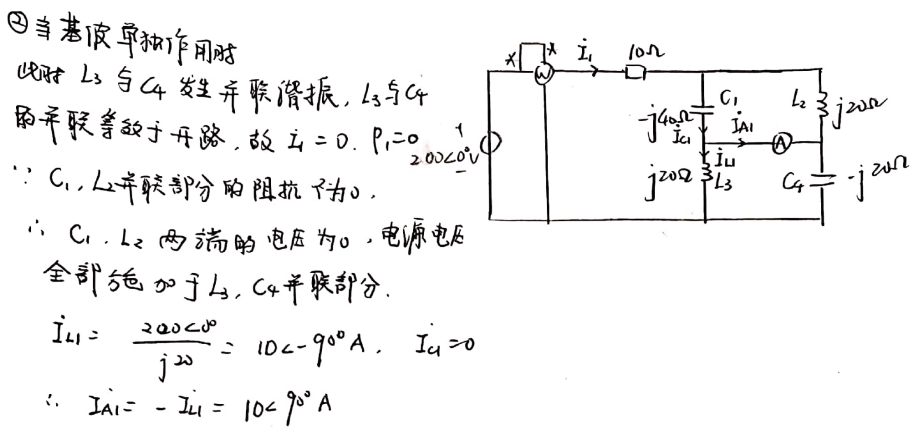 ②当基波单独作用时
此时 L₃ 与 C₄ 发生并联谐振, L₃与C₄
的并联等效于开路, 故 İ₁=0. P₁=0
∵ C₁, L₂并联部分的阻抗不为0,
∴ C₁, L₂ 两端的电压为0, 电源电压
全部施加于L₃, C₄并联部分.
İL1 = 200<0° / j20 = 10<-90° A, İC1=0
∴ İA1 = - İL1 = 10<90° A
* * W İ₁ 10Ω
C₁ -j40Ω İC1
L₂ j20Ω
İA1 A
200<0°V + -
İL1 j20Ω L₃
C₄ -j20Ω